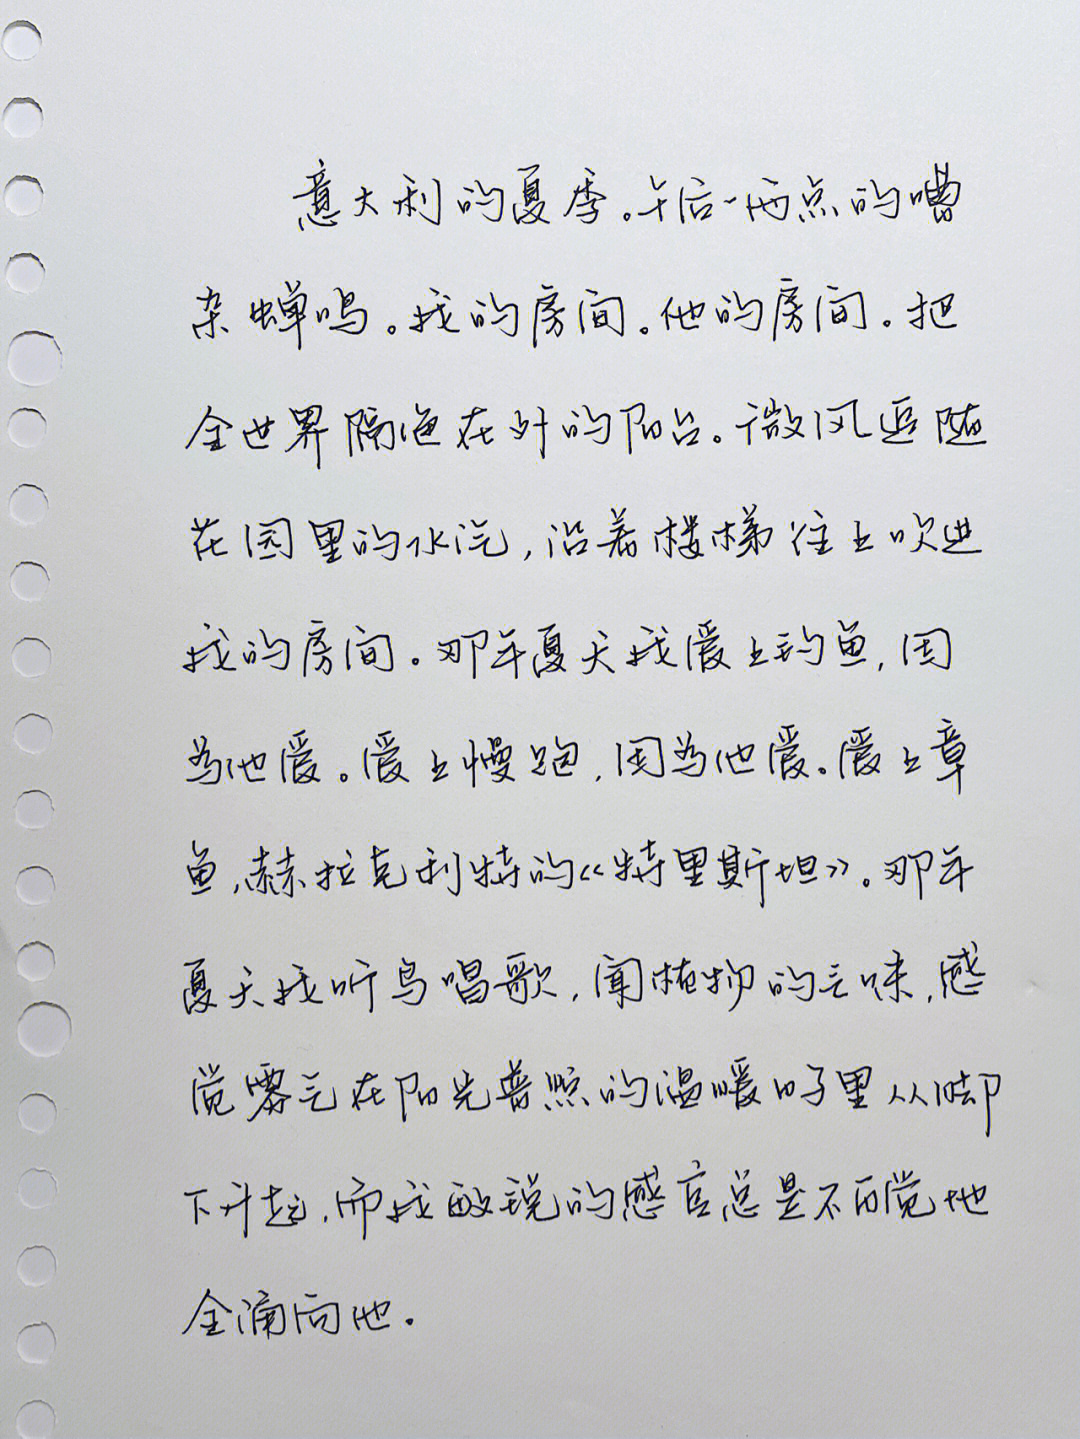 意大利的夏季。午后一两点的嘈
杂蝉鸣。我的房间。他的房间。把
全世界隔绝在外的阳台。微风追随
花园里的水汽,沿着楼梯往上吹进
我的房间。那年夏天我爱上钓鱼,因
为他爱。爱上慢跑,因为他爱。爱上章
鱼,赫拉克利特的《特里斯坦》。那年
夏天我听鸟唱歌,闻植物的气味,感
觉雾气在阳光普照的温暖日子里从脚
下升起,而我敏锐的感官总是不自觉地
全涌向他。